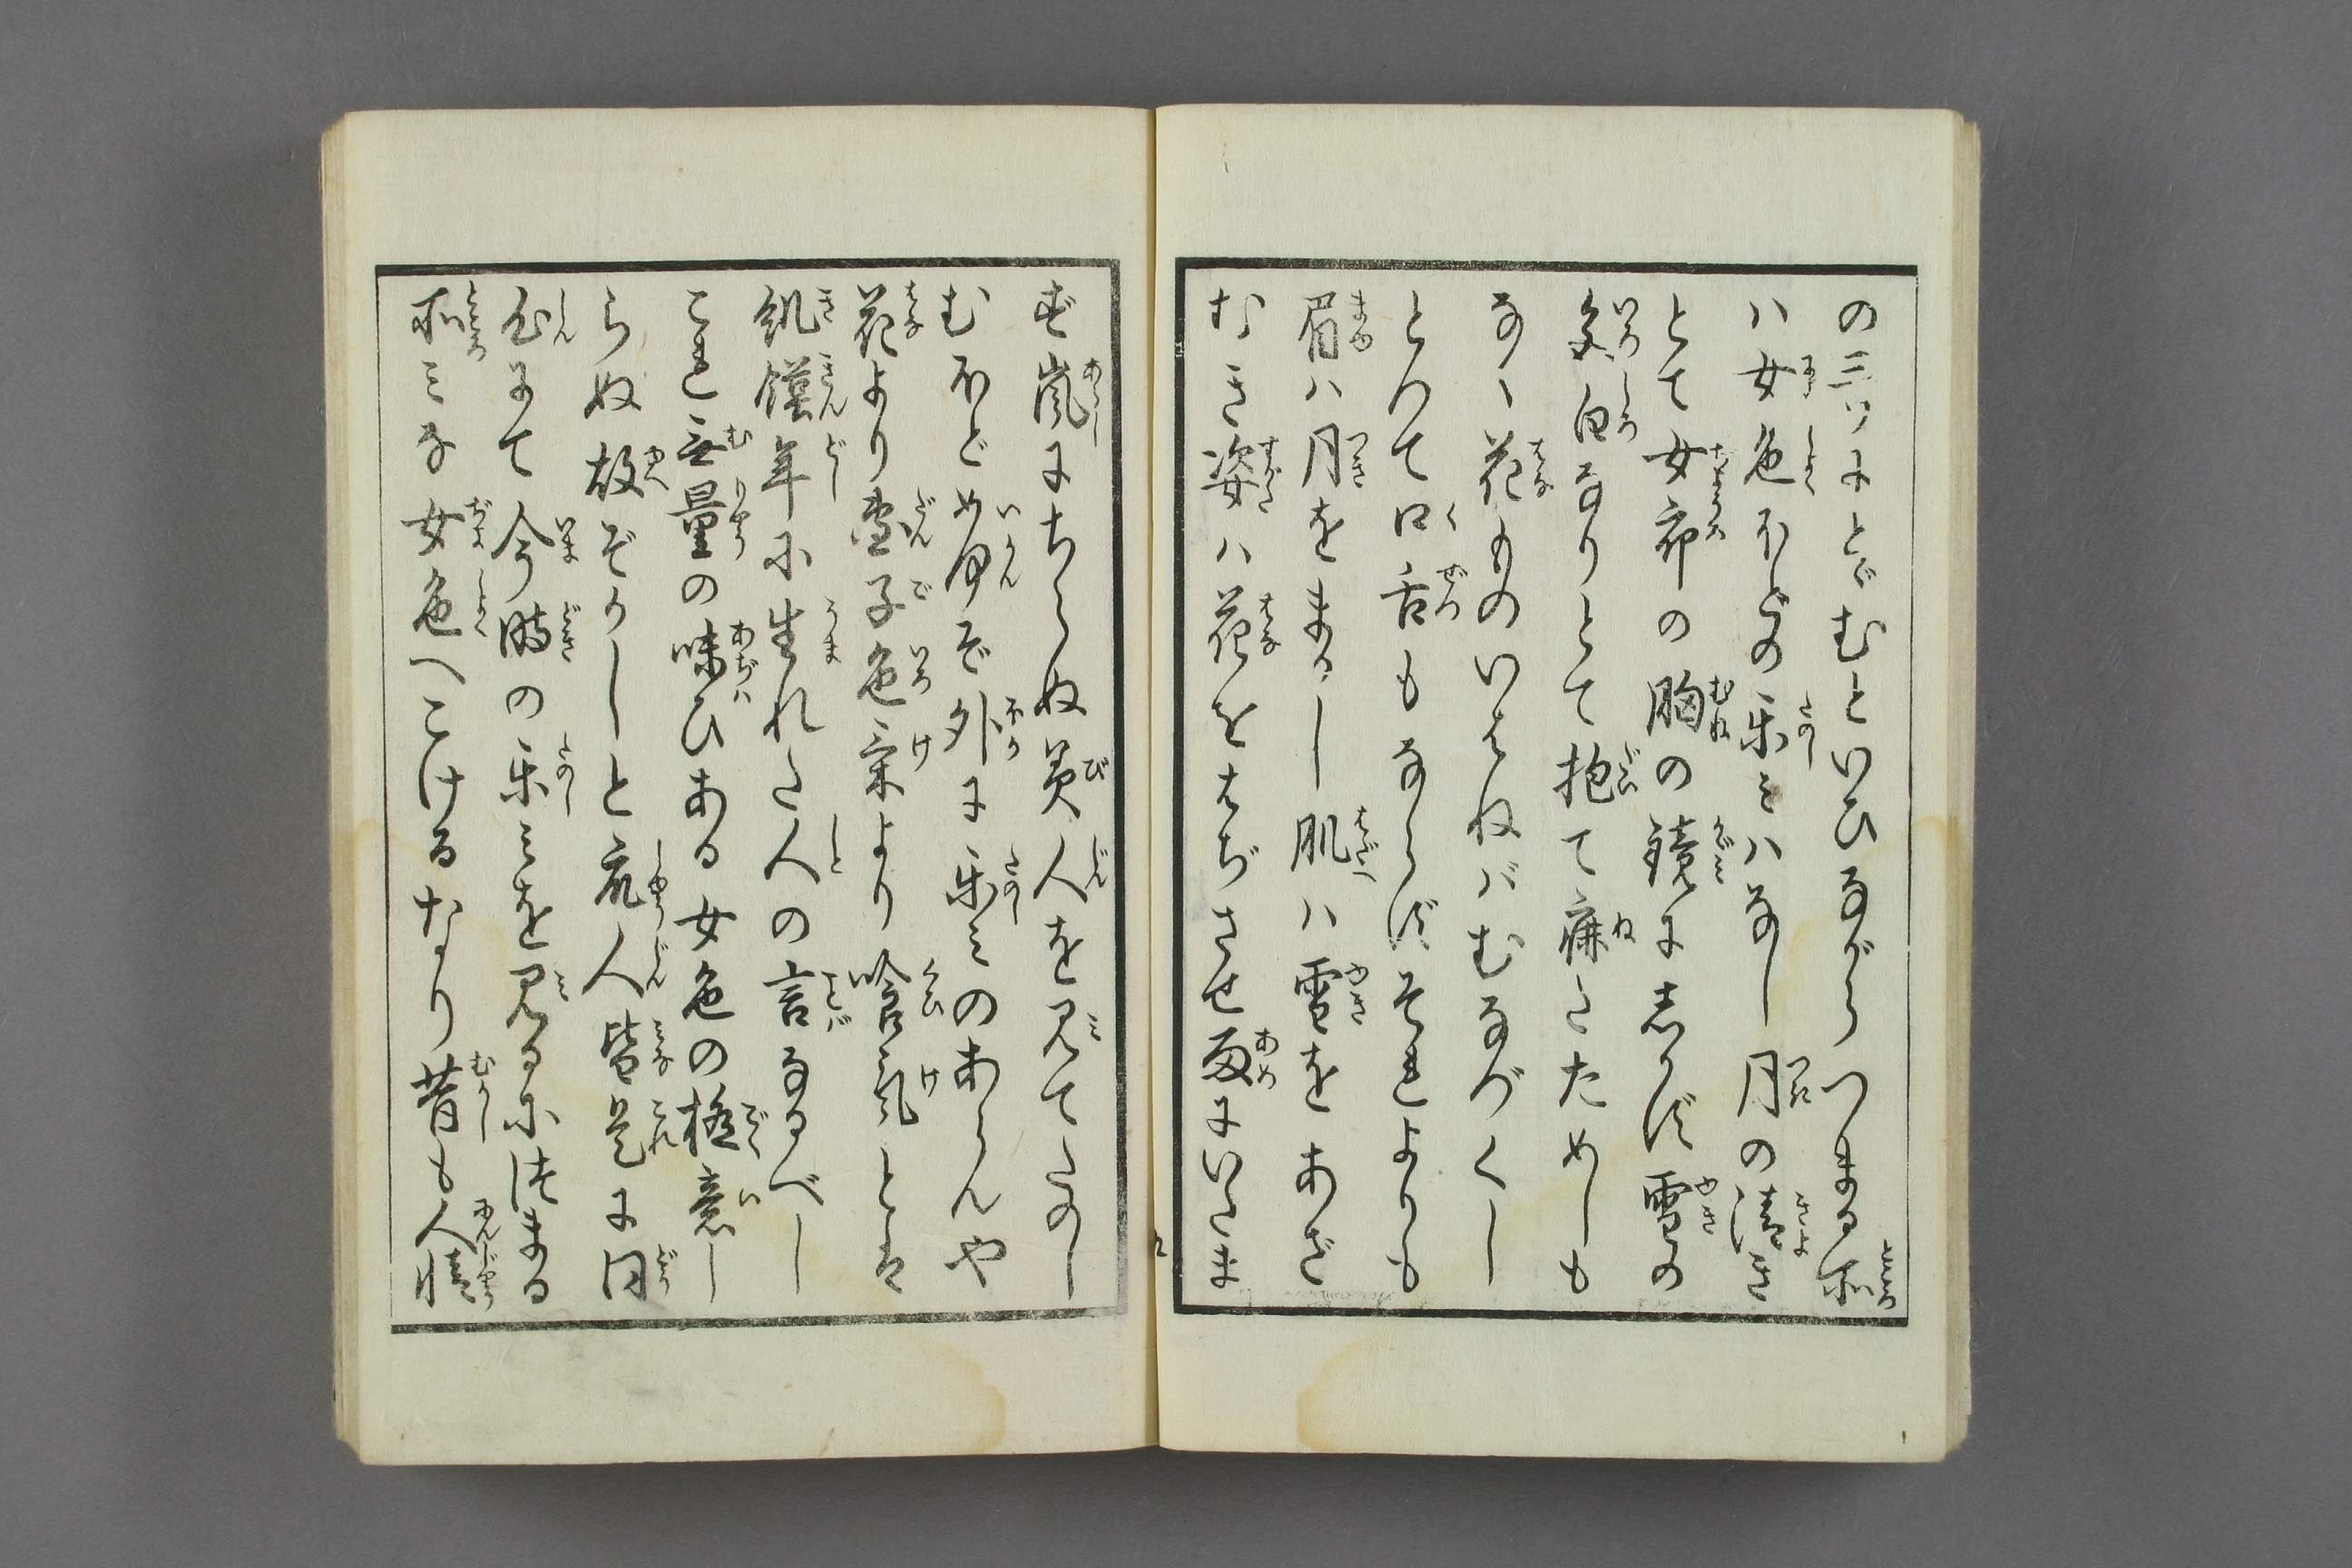 の三ツにとゞむといひながらつまる所
ハ女色ほどの楽ミハなし月の清き
とて女郎の胸の鏡にしかず雪の
色白なりとて抱て寐たためしも
なく花ものいはねバむなづくし
とつて口舌もならずそれよりも
眉ハ月をまるし肌ハ雪をあざ
むき姿ハ花をはぢさせ雨にいたま
ず嵐にちらぬ美人を見てたのし
むほどめ何ぞ外に楽ミのあらんや
花より団子色気より喰気とは
飢饉年に生れた人の言なるべし
これ無量の味ひある女色の極意し
らぬ故ぞかしと衆人皆是に同
心にて今時の楽ミを見るにつまる
所ミな女色へこけるなり昔も人情